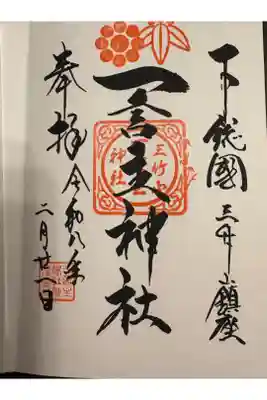 下総國 三竹山鎮座
一言主神社
三竹山
神社
奉拝 令和八年
二月廿一日